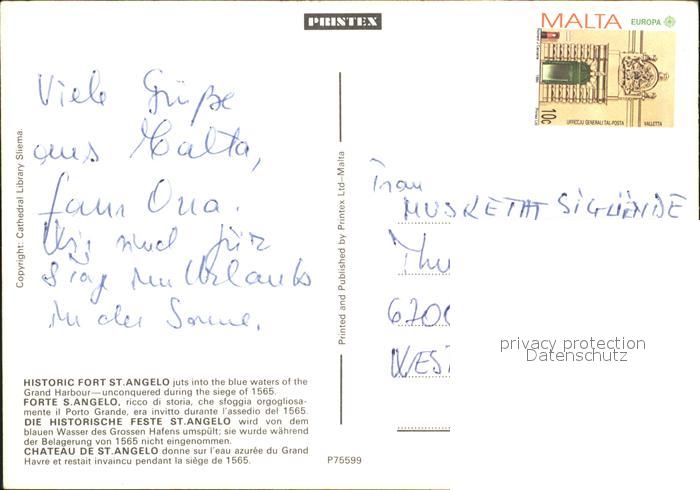 PRISTEX
MALTA EUROPA
10c
UFFIĊĊJU ĠENERALI TAL-POSTA VALLETTA
Viele Grüße
aus Malta,
Wir sind für
im Urlaub
in der Sonne.
Frau
Copyright: Cathedral Library Sliema.
Printed and Published by Printex Ltd—Malta
670
WEST
privacy protection
Datenschutz
HISTORIC FORT ST.ANGELO juts into the blue waters of the
Grand Harbour—unconquered during the siege of 1565.
FORTE S.ANGELO, ricco di storia, che sfoggia orgogliosa-
mente il Porto Grande, era invitto durante l'assedio del 1565.
DIE HISTORISCHE FESTE ST.ANGELO wird von dem
blauen Wasser des Grossen Hafens umspült; sie wurde während
der Belagerung von 1565 nicht eingenommen.
CHATEAU DE ST.ANGELO donne sur l'eau azurée du Grand
Havre et restait invaincu pendant la siège de 1565.
P75599